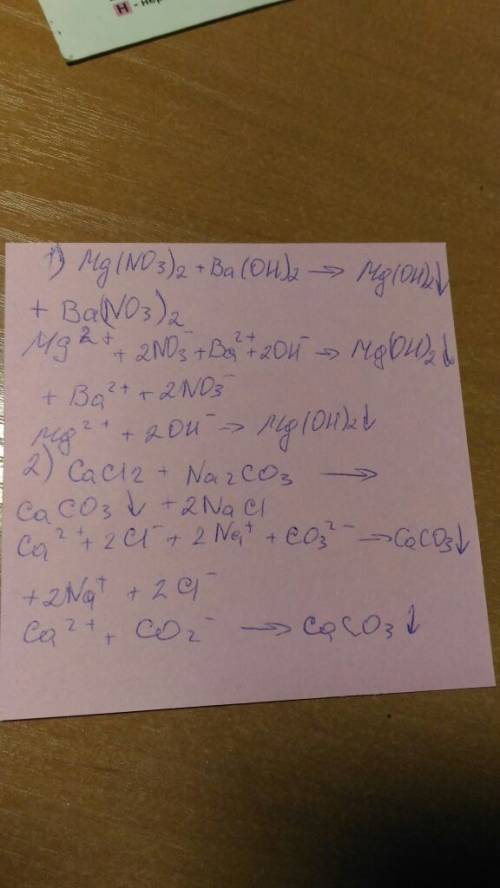 H - нер
1) Mg(NO3)2 + Ba(OH)2 → Mg(OH)2↓
+ Ba(NO3)2
Mg2+ + 2NO3- + Ba2+ + 2OH- → Mg(OH)2↓
+ Ba2+ + 2NO3-
Mg2+ + 2OH- → Mg(OH)2↓
2) CaCl2 + Na2CO3 →
CaCO3↓ + 2NaCl
Ca2+ + 2Cl- + 2Na+ + CO32- → CaCO3↓
+ 2Na+ + 2Cl-
Ca2+ + CO2- → CaCO3↓